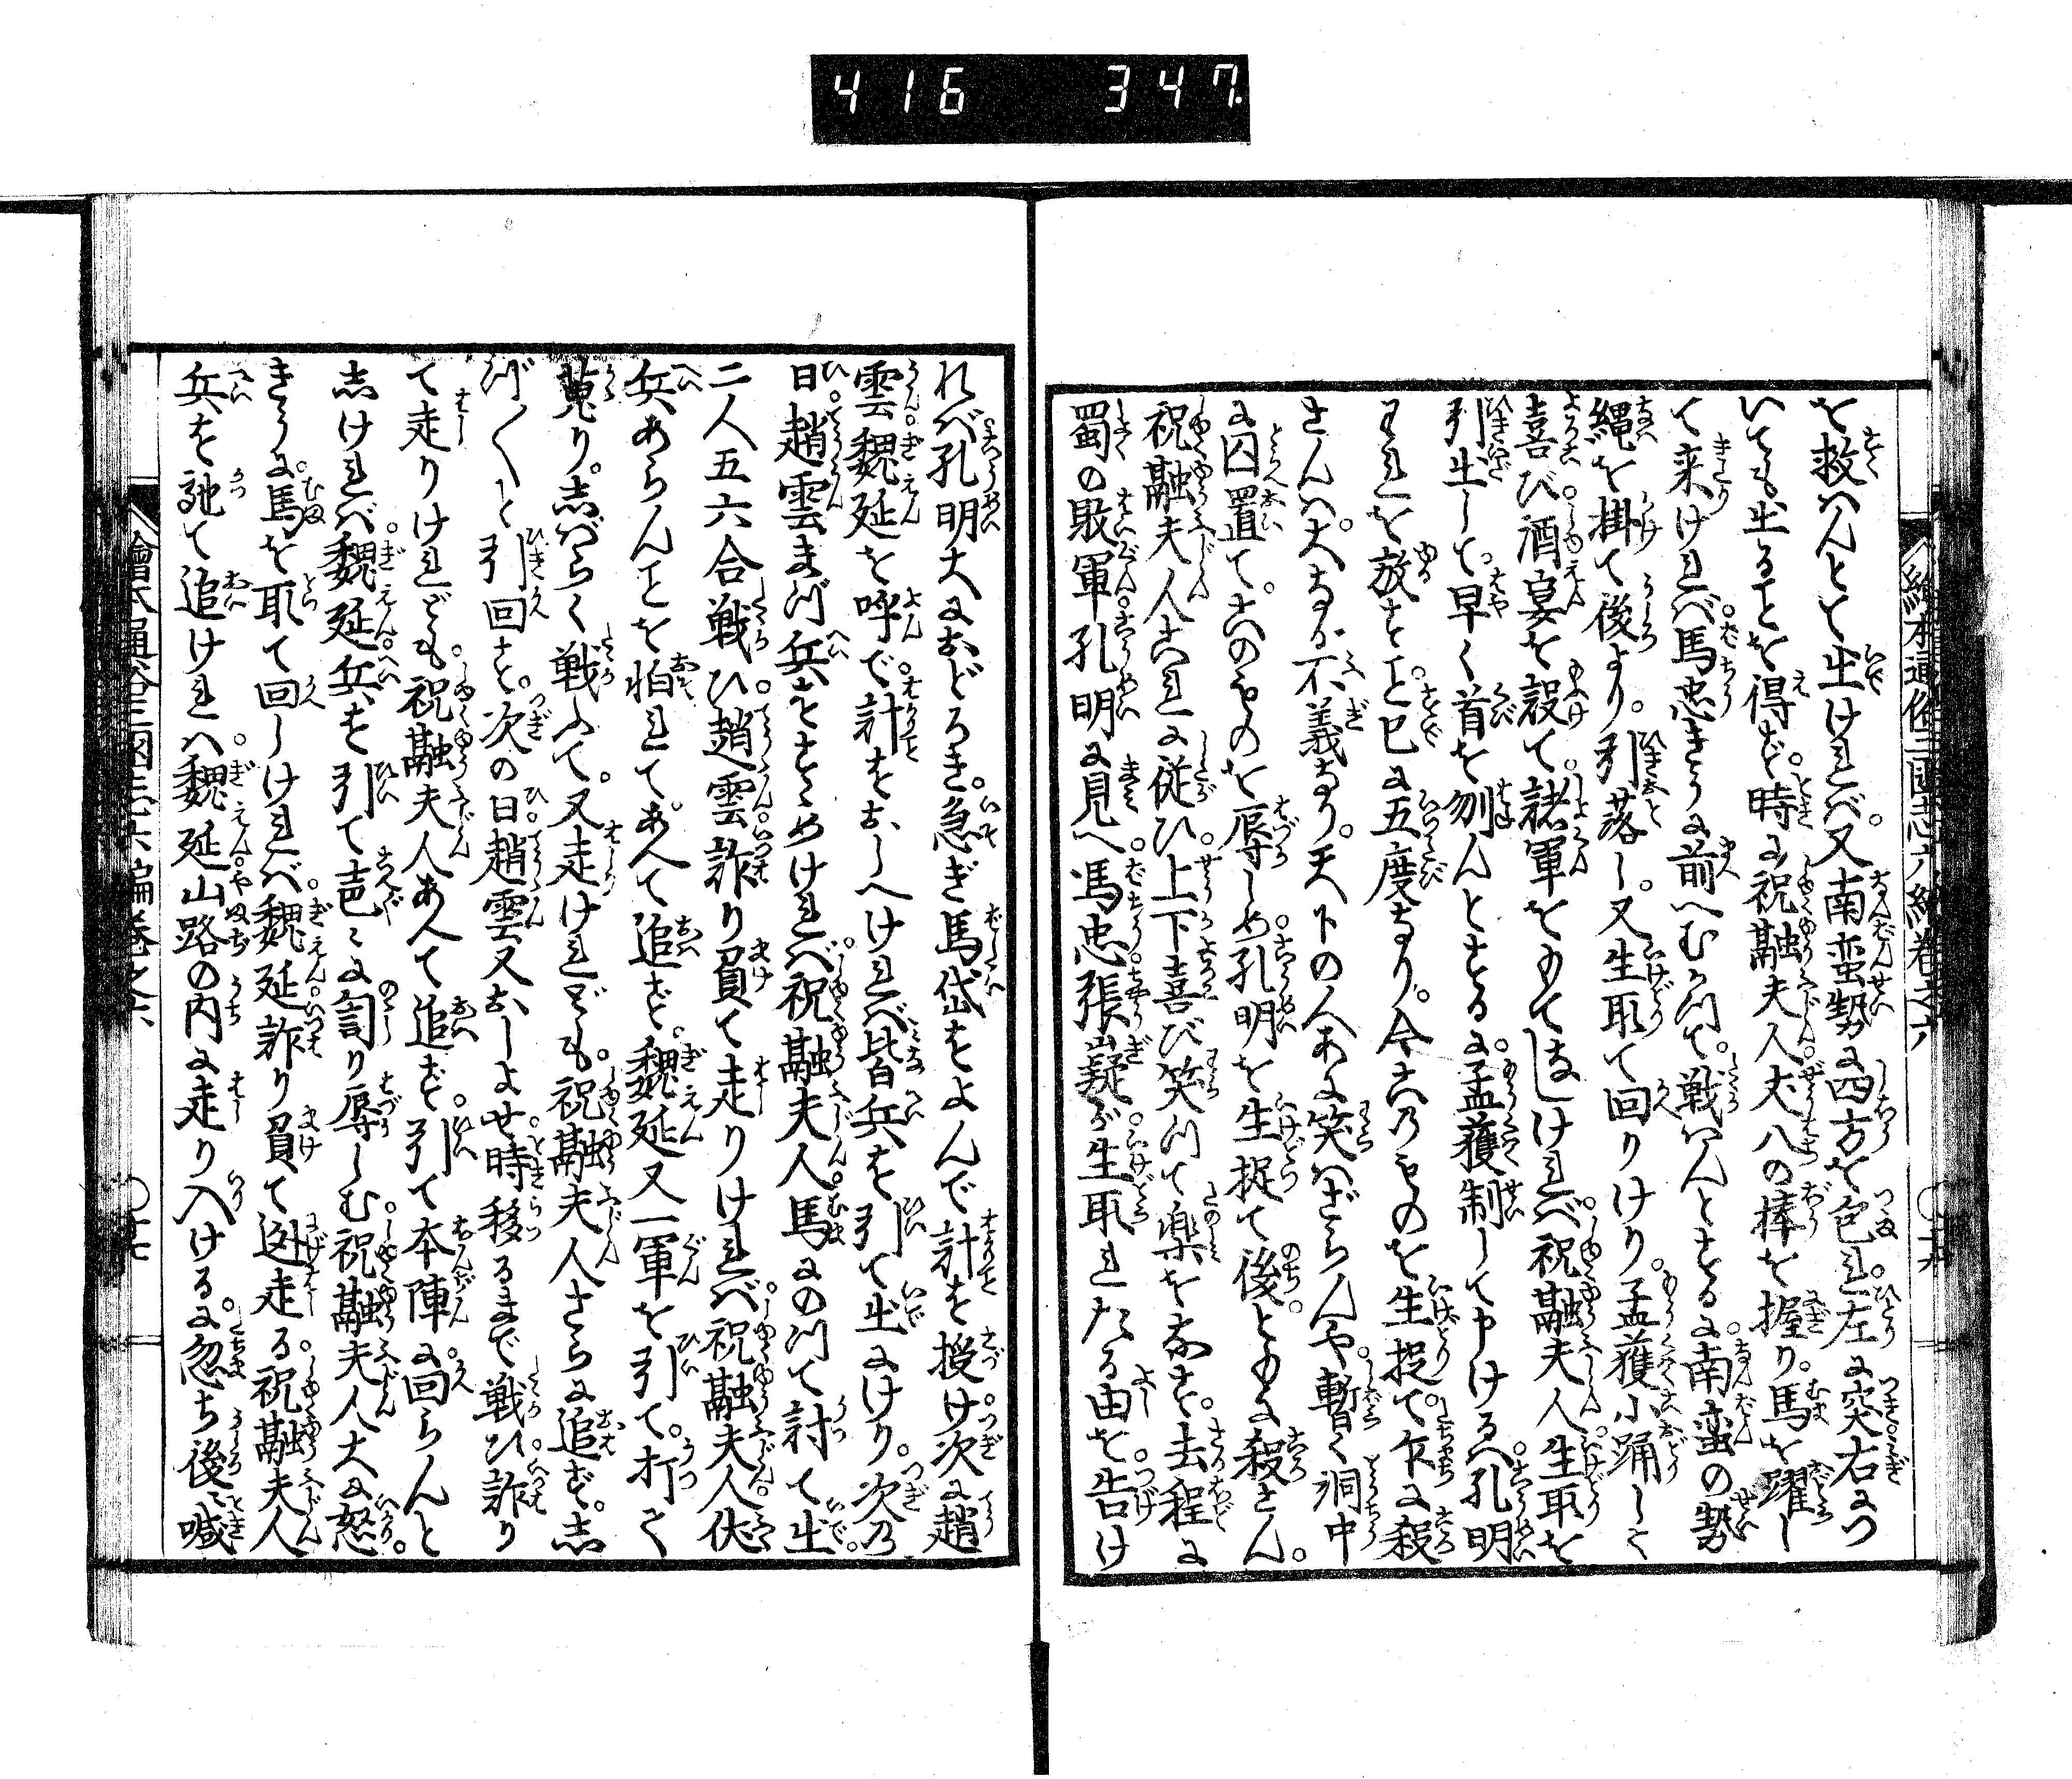 416 347
繪本通俗三國志六編卷之六
を救はんとて出けれバ。又南蛮勢に四方を包れ。左に突右につ
いても出ることを得ず。時に祝融夫人丈八の捧を握り。馬を躍し
て来けれバ。馬忠きうに前へむかつて。戦はんとするに。南蛮の勢
縄を掛て後より。引落し。又生取て回りけり。孟獲小踊して
喜び。酒宴を設て。諸軍をもてなしけれバ。祝融夫人生取を
引出して。早く首を刎んとするに。孟獲制して申けるハ。孔明
われを放すこと。已に五度なり。今这のものを生捉て。乍に殺
さんハ。大なる不義なり。天下の人あに笑はざらんや。暫く洞中
に囚置て。这のものを辱しめ。孔明を生捉て後。ともに殺さん。
祝融夫人これに従ひ。上下喜び笑つて楽をなす。去程に
蜀の敗軍。孔明に見へ。馬忠張嶷が生取れたる由を。告け
れバ。孔明大におどろき。急ぎ馬岱をよんで計を授け。次に趙
雲魏延を呼で。計をおしへけれバ皆兵を引て出にけり。次の
日。趙雲まづ兵をすゝめけれバ。祝融夫人。馬にのつて討て出。
二人五六合戦ひ。趙雲詐り負て走りけれバ。祝融夫人。伏
兵あらんことを怕れて。あへて追ず。魏延又一軍を引て。打て
蒐り。志バらく戦ふて。又走けれども。祝融夫人さらに追ず。志
づ〱と引回す。次の日。趙雲又おしよせ。時移るまで戦ひ。詐り
て走りけれども。祝融夫人あへて追ず。引て本陣に回らんと
志けれバ。魏延兵を引て。㐂〻に罰り辱しむ。祝融夫人大に怒。
きうに。馬を取て回しけれバ。魏延詐り負て迯走る。祝融夫人
兵を馳て追けれハ。魏延山路の内に走り入けるに。忽ち後に喊
繪本通俗三國志六編卷之六
〇十七